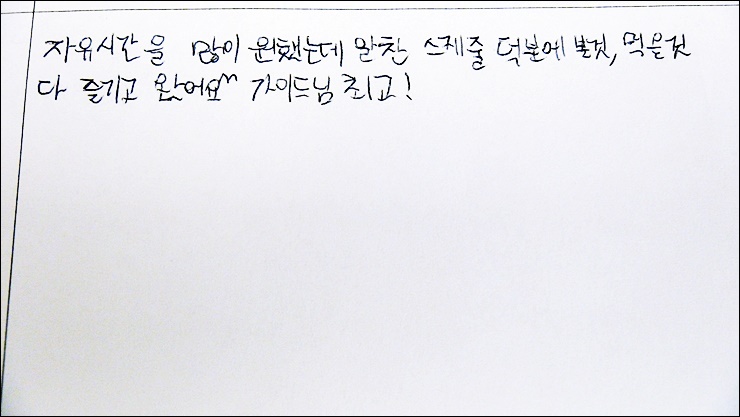 자유시간을 많이 원했는데 알찬 스케줄 덕분에 볼것, 먹을것
다 즐기고 왔어요^^ 가이드님 최고!